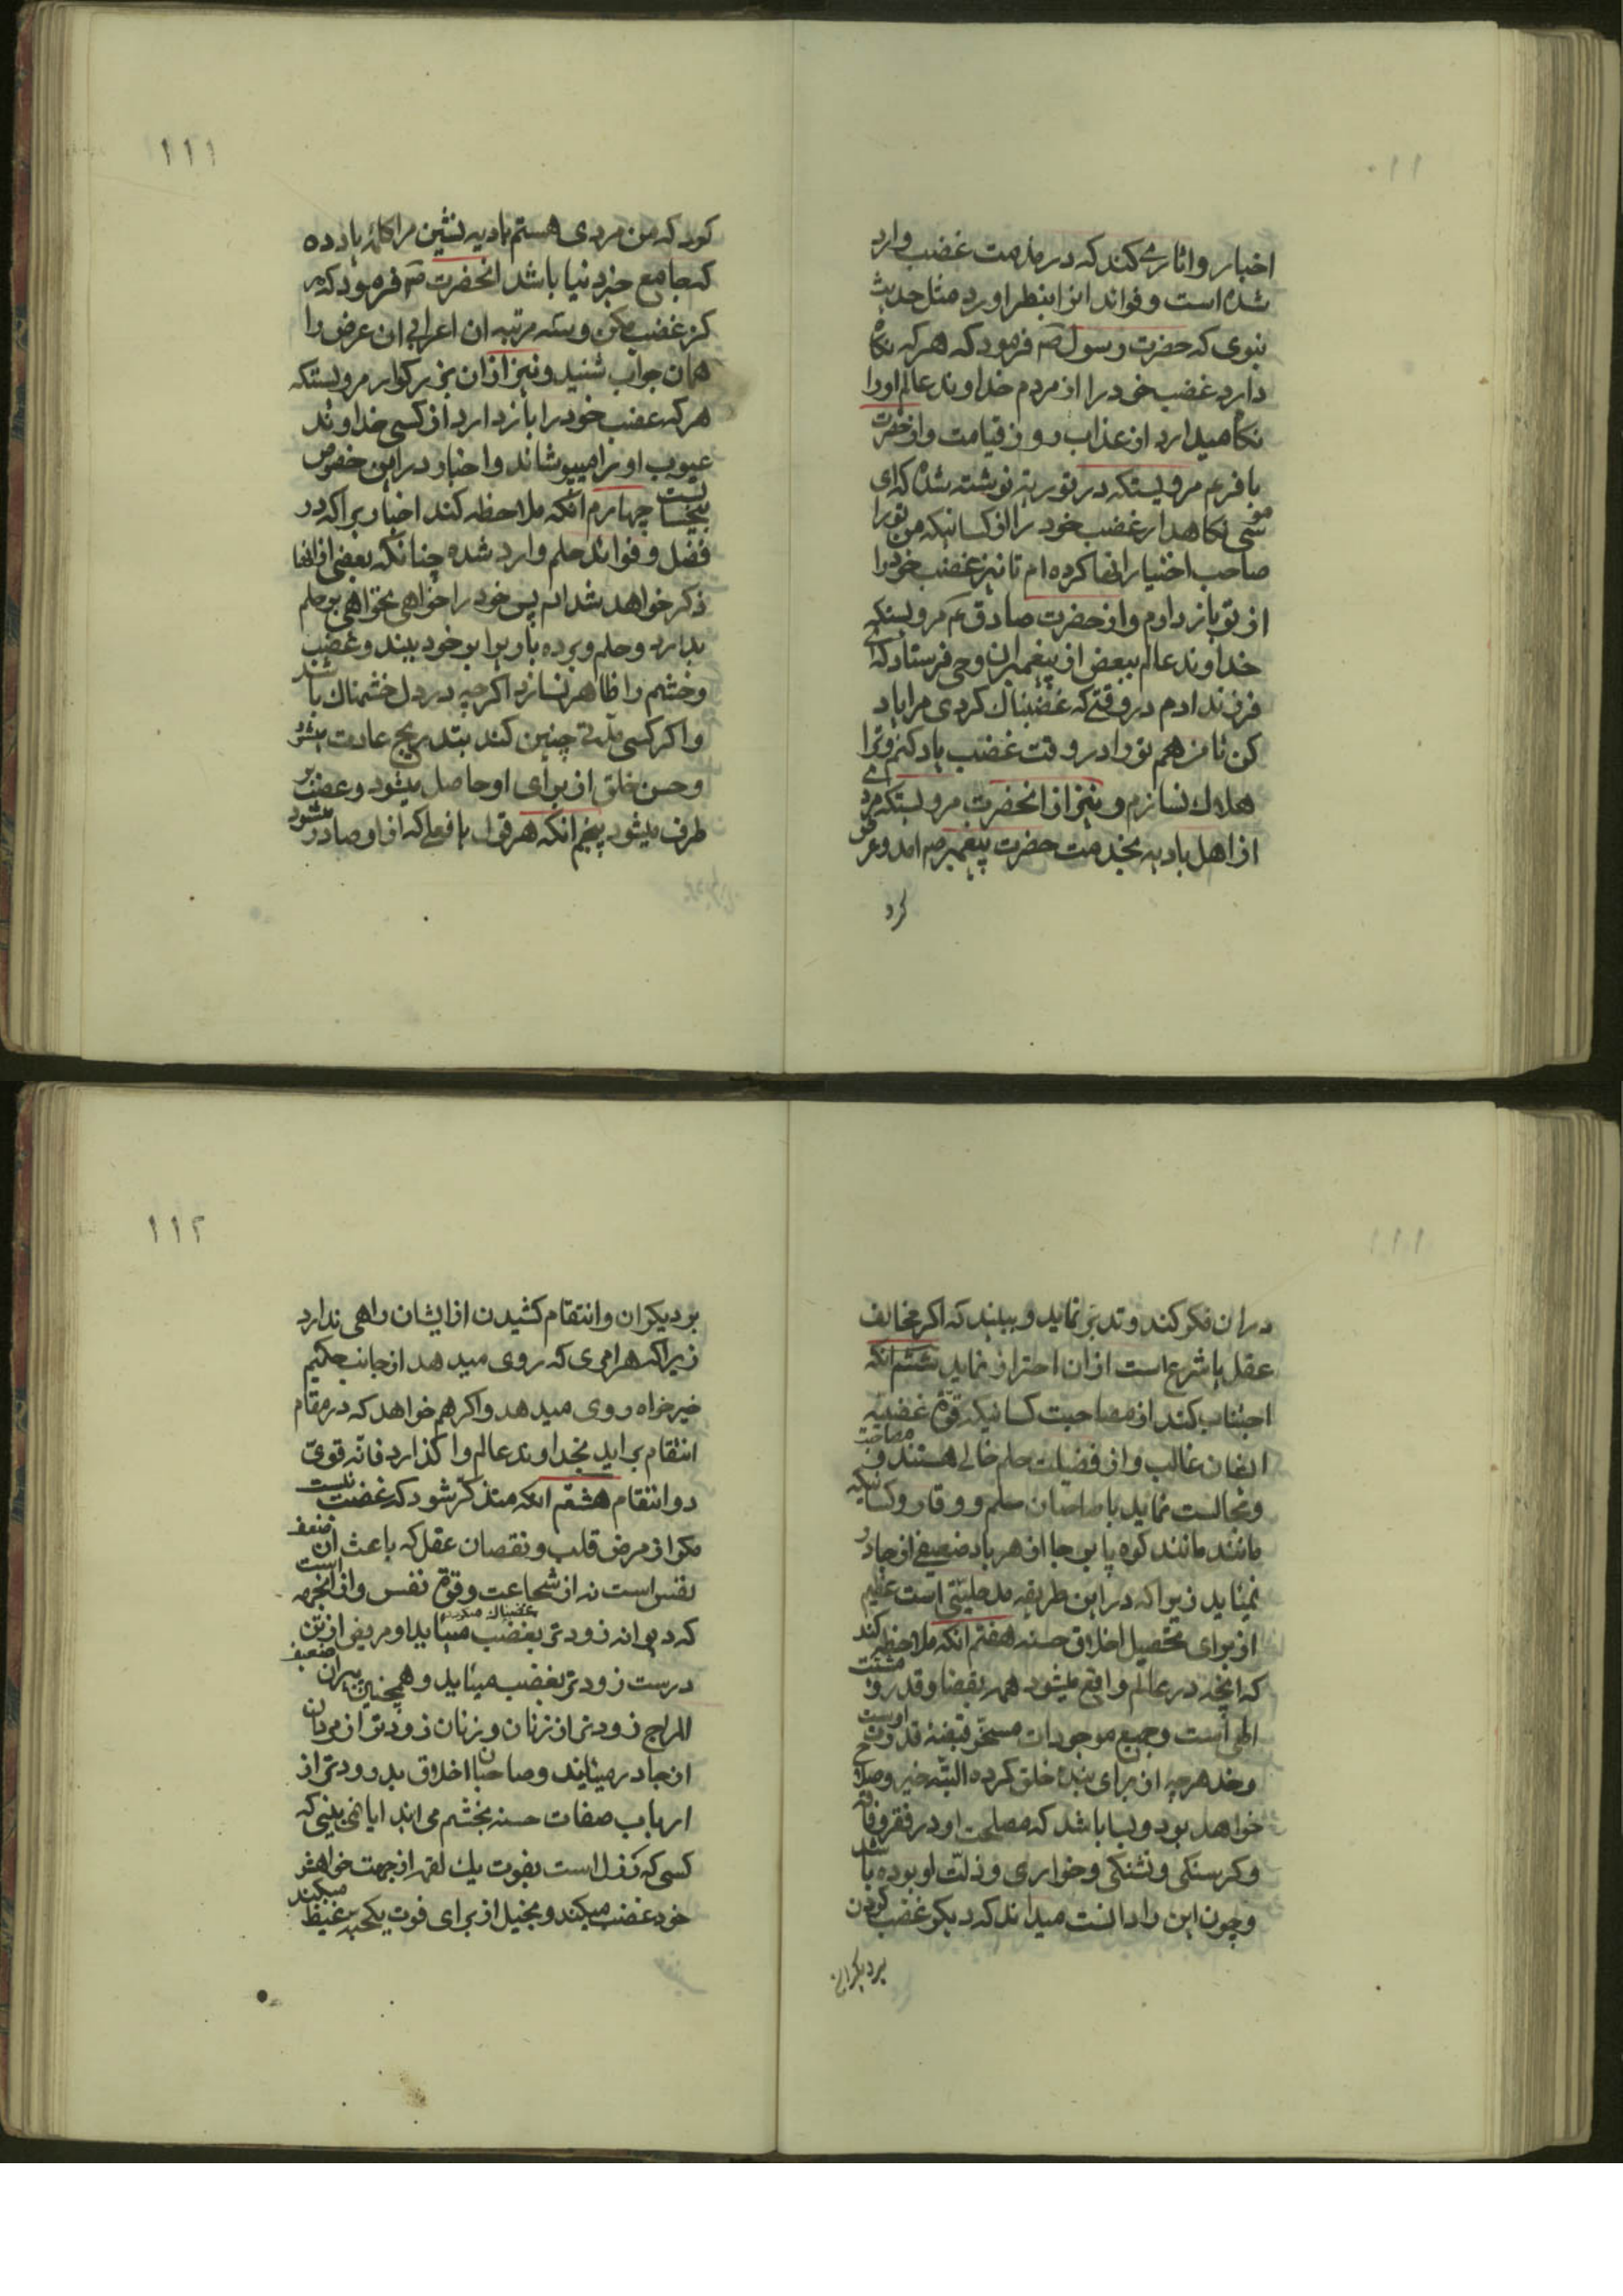 اخبار و اثاری کند که در مذمت غضب وارد
شده است و فواند انرا بنظر اورد مثل حدیث
نبوی که حضرت رسول صم فرمود که هر که نکاه
دارد غضب خود را از مردم خداوند عالم اورا
نکاه میدارد از عذاب روز قیامت و از حضرت
باقر عم مرویستکه در توریة نوشته شده که ای
موسی نکاهدار غضب خود را از کسانیکه من تورا
صاحب اختیار انها کرده ام تا نیز غضب خود را
از تو باز دارم و از حضرت صادق عم مرویستکه
خداوند عالم ببعض از پیغمبران وحی فرستاد که ای
فرزند ادم در وقتے که غضبناک کردی مرا یاد
کن تا من هم تورا در وقت غضب یاد کنم و ترا
هلاك نسازم و نیز از انحضرت مرویستکه مردے
از اهل بادیه بخدمت حضرت پیغمبر صم امد و عرض
کرد
۱۱۱
کرد که من مردی هستم بادیه نشین مرا کلمهٔ یاد ده
که جامع خیر دنیا باشد انحضرت صم فرمود که هر
کز غضب مکن و سه مرتبه ان اعرابی این عرض را
همان جواب شنید و نیز از ان بزرکوار مرویستکه
هر که غضب خود را باز دارد از کسی خداوند
عیوب او را میپوشاند و اخبار در این خصوص
بیحساب است چهارم انکه ملاحظه کند اخباریرا که در
فضل و فواند حلم وارد شده چنانکه بعضی از انها
ذکر خواهد شد پس خود را خواهی نخواهی بر حلم
بدارد و حلم و بردباری را بر خود ببندد و غضب
و خشم را ظاهر نسازد اکر چه در دل خشمناك باشد
و اکر کسی مدتے چنین کند بتدریج عادت میشود
و حسن خلق از برای او حاصل میشود و غضب بر
طرف میشود پنجم انکه هر قول یا فعلے که از او صادر میشود
در ان فکر کند و تدبر نماید و ببیند که اکر مخالف
عقل یا شرع است از ان احتراز نماید ششم انکه
اجتناب کند از مصاحبت کسانیکه قوّهٔ غضبیه
ایشان غالب و از فضیلت حلم خالے هستند و مصاحبت
و مجالست نماید با صاحبان حلم و وقار و کسانیکه
مانند کوه پا بر جا از هر باد ضعیفے از جا در
نمیاید زیرا که در این طریقه مدخلیتی است عظیم
از برای تحصیل اخلاق حسنه هفتم انکه ملاحظه کند
که انچه در عالم واقع میشود همه بقضا و قدر و مشیت
الهی است و جمیع موجودات مسخر قبضهٔ قدرت اوست
و خدا هر چه از برای بنده خلق کرده البته خیر و صلاح
خواهد بود و بسا باشد که مصلحت او در فقر و فاقه
و کرسنکی و تشنکی و خواری و ذلّت او بوده باشد
و چون این را دانست میداند که دیکر غضب کردن
بر دیکران
۱۱۲
بر دیکران و انتقام کشیدن از ایشان راهی ندارد
زیرا که هر امری که روی میدهد از جانب حکیم
خیرخواه روی میدهد و اکر هم خواهد که در مقام
انتقام بر اید بخداوند عالم وا کذارد فانّه قویّ
ذو انتقام هشتم انکه متذکر شود که غضب نیست
مکر از مرض قلب و نقصان عقل که باعث ان ضعف
نفس است نه از شجاعت و قوّة نفس و از انجهه است
که دیوانه زودتر بغضب میاید و مریض از تن
درست زودتر بغضب میاید و همچنین پیران ضعیف
المزاج زودتر از زنان و زنان زودتر از مردان
از جا در میایند و صاحبان اخلاق بد زودتر از
ارباب صفات حسنه بخشم می ایند ایا نمی بینی که
کسی که رذل است بفوت یك لقمه از جهت خواهش
خود غضب میکند و بخیل از برای فوت یکحبه غیظ میکند